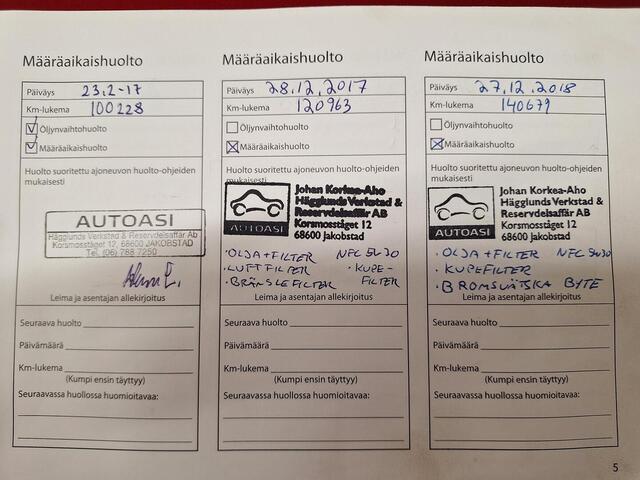 Määräaikaishuolto
Päiväys 23.2-17
Km-lukema 100228
Öljynvaihtohuolto
Määräaikaishuolto
Huolto suoritettu ajoneuvon huolto-ohjeiden
mukaisesti
AUTOASI
Hägglunds Verkstad & Reservdelsaffär Ab
Korsmosståget 12, 68600 JAKOBSTAD
Tel. (06) 788 7250
Leima ja asentajan allekirjoitus
Seuraava huolto
Päivämäärä
Km-lukema
(Kumpi ensin täyttyy)
Seuraavassa huollossa huomioitavaa:
Määräaikaishuolto
Päiväys 28.12.2017
Km-lukema 120963
Öljynvaihtohuolto
Määräaikaishuolto
Huolto suoritettu ajoneuvon huolto-ohjeiden
mukaisesti
Johan Korkea-Aho
Hägglunds Verkstad &
Reservdelsaffär AB
Korsmoståget 12
68600 Jakobstad
AUTOASI
• OLJA + FILTER NFC 5W30
• LUFTFILTER • KUPE-
• BRÄNSLEFILTER FILTER
Leima ja asentajan allekirjoitus
Seuraava huolto
Päivämäärä
Km-lukema
(Kumpi ensin täyttyy)
Seuraavassa huollossa huomioitavaa:
Määräaikaishuolto
Päiväys 27.12.2018
Km-lukema 140679
Öljynvaihtohuolto
Määräaikaishuolto
Huolto suoritettu ajoneuvon huolto-ohjeiden
mukaisesti
Johan Korkea-Aho
Hägglunds Verkstad &
Reservdelsaffär AB
Korsmoståget 12
68600 Jakobstad
AUTOASI
• OLJA + FILTER NFC 5W30
• KUPEFILTER
• BROMSVÄTSKA BYTE
Leima ja asentajan allekirjoitus
Seuraava huolto
Päivämäärä
Km-lukema
(Kumpi ensin täyttyy)
Seuraavassa huollossa huomioitavaa:
5